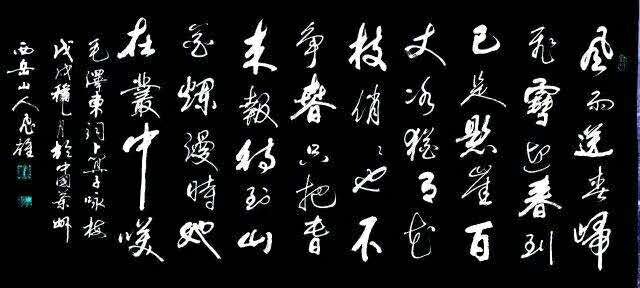 风雨送春歸
飛雪迎春到
已是懸崖百
丈冰猶有花
枝俏〻也不
争春只把春
来報待到山
花爛漫時她
在叢中咲
毛澤東詞卜算子咏梅
戊戌穐月於中國
西岳山人